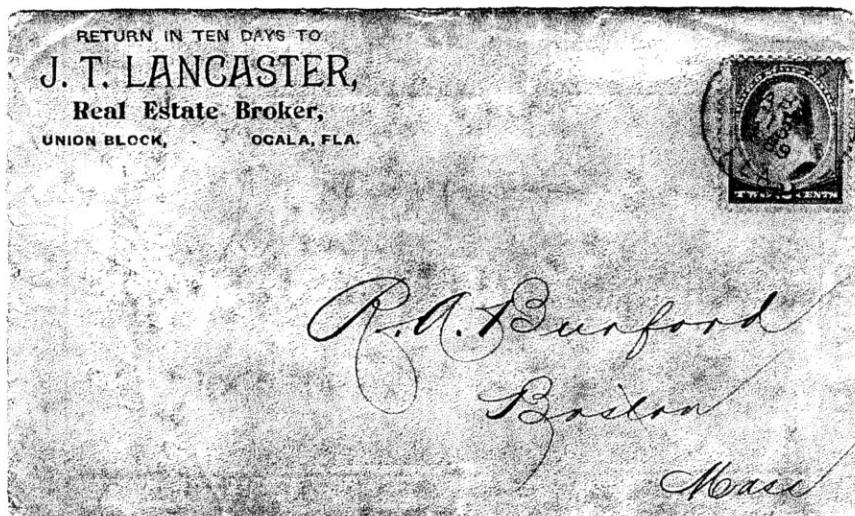 RETURN IN TEN DAYS TO
J. T. LANCASTER,
Real Estate Broker,
UNION BLOCK, OCALA, FLA.
R. A. Burford
Boston
Mass